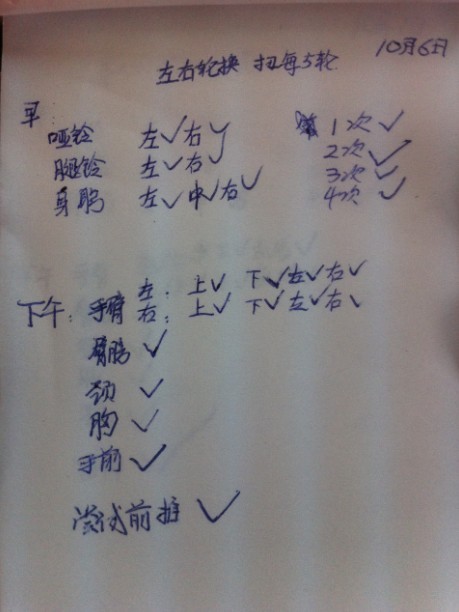 10月6日
左右轮换 扭每5轮
早:
哑铃 左✓右✓ 1次✓
腿铃 左✓右✓ 2次✓
身 左✓中✓右✓ 3次✓
4次✓
下午: 手臂 左: 上✓ 下✓左✓右✓
右: 上✓ 下✓左✓右✓
✓
颈 ✓
胸 ✓
手前 ✓
尝试前推 ✓